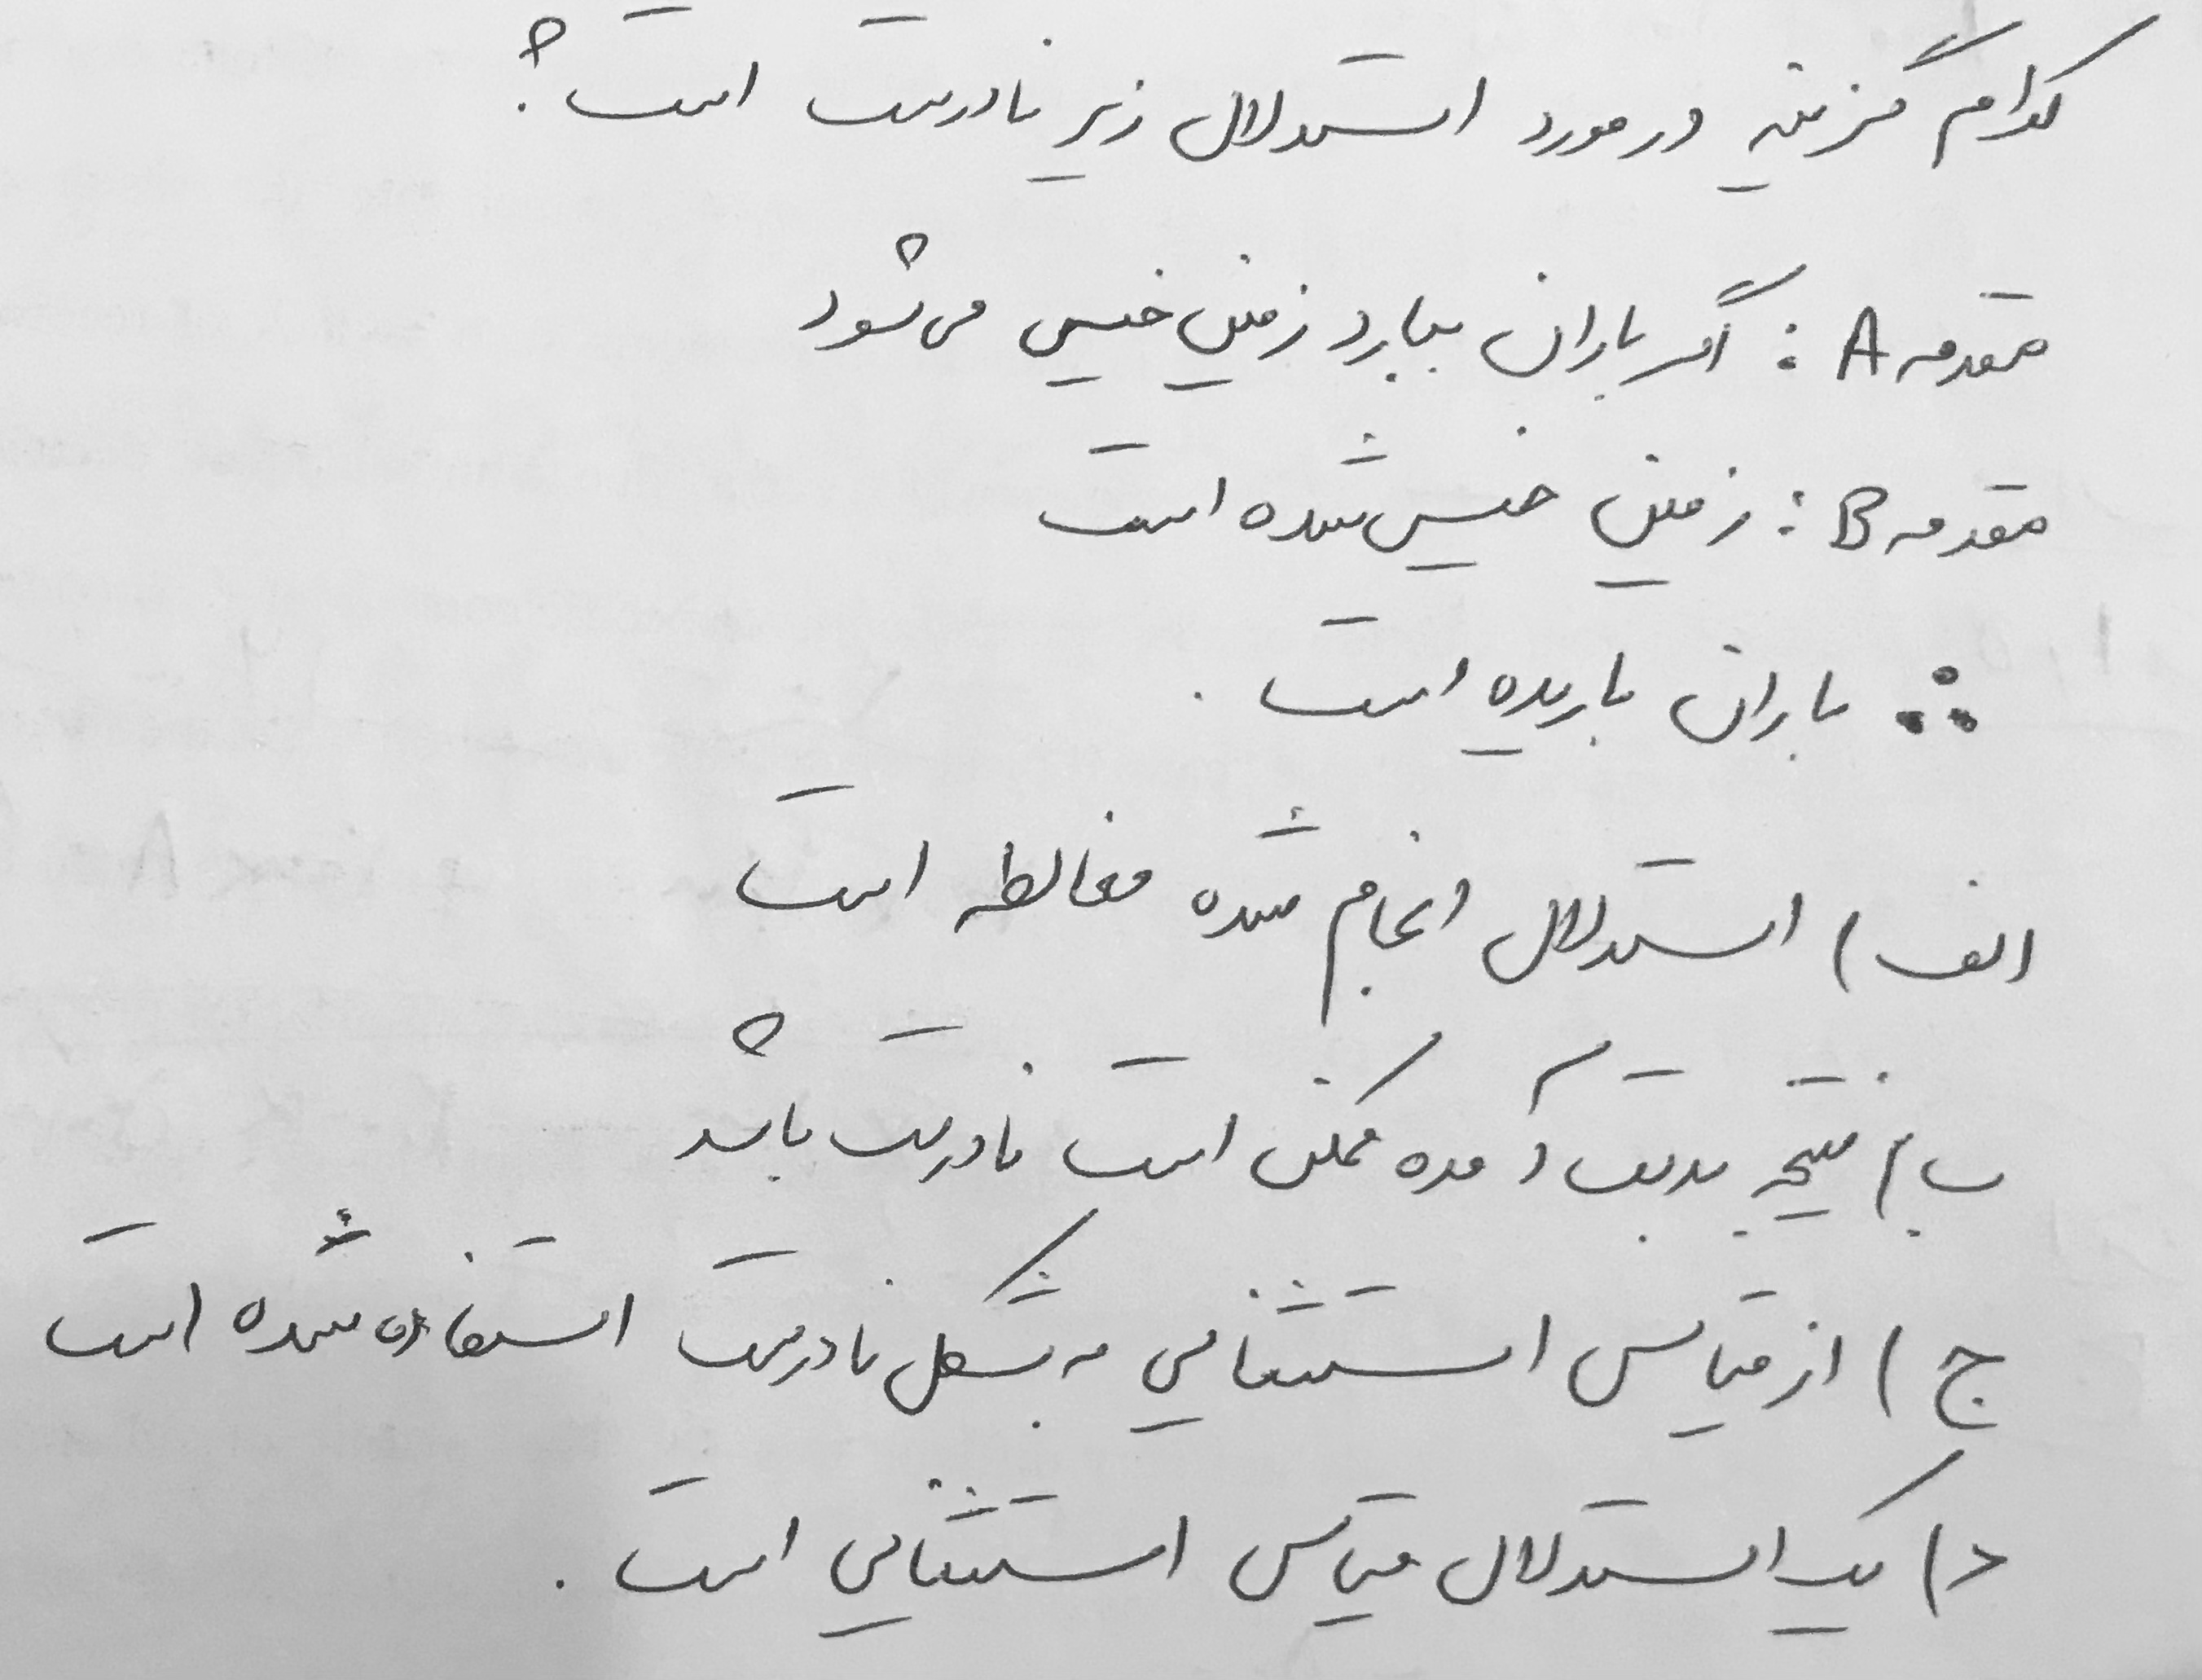 کدام گزینه در مورد استدلال زیر نادرست است؟
مقدمه A : اگر باران ببارد زمین خیس می‌شود
مقدمه B : زمین خیس شده است
∴ باران باریده است .
الف ) استدلال انجام شده مغالطه است
ب ) نتیجه بدست آمده ممکن است نادرست باشد
ج ) از قیاس استثنایی به شکل نادرست استفاده شده است
د ) یک استدلال قیاس استثنایی است .